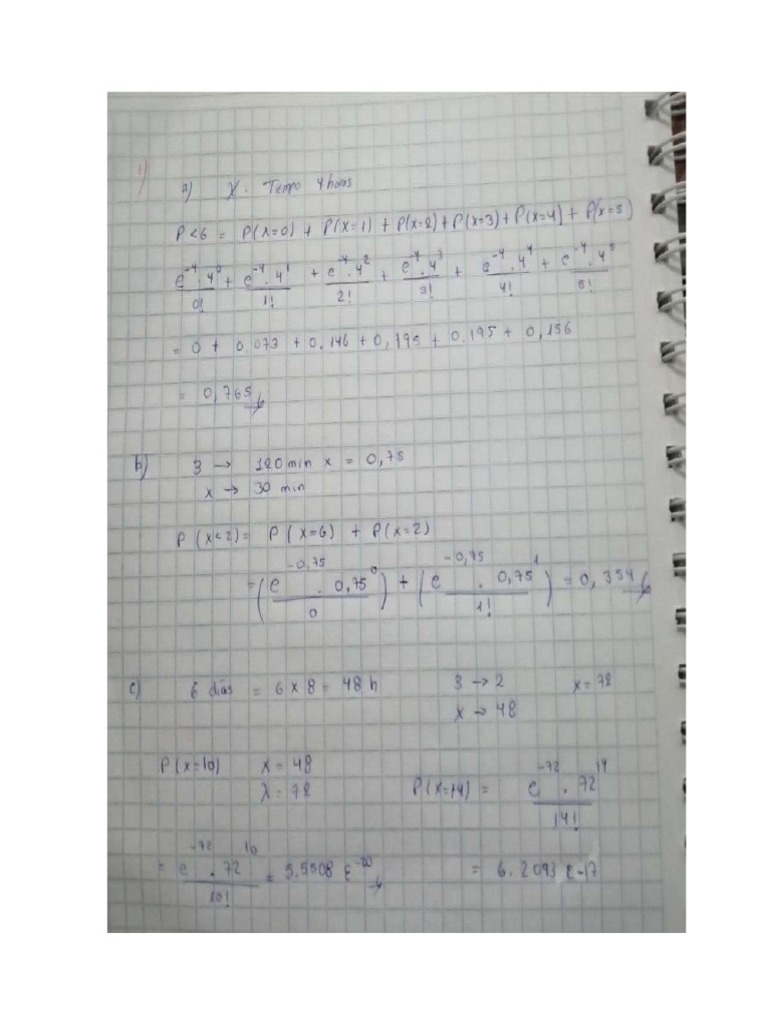 1)
a) X: Tiempo 4 horas
P<6 = P(x=0) + P(x=1) + P(x=2) + P(x=3) + P(x=4] + P(x=5)
e^-4 . 4^0 / 0! + e^-4 . 4^1 / 1! + e^-4 . 4^2 / 2! + e^-4 . 4^3 / 3! + e^-4 . 4^4 / 4! + e^-4 . 4^5 / 5!
= 0 + 0.073 + 0.146 + 0,195 + 0.195 + 0,156
= 0,765
b) 3 → 120 min x = 0,75
x → 30 min
P (x<2) = P (x=0) + P(x=2)
= (e^-0,75 . 0,75^0 / 0) + (e^-0,75 . 0,75^1 / 1!) = 0,354
c) 6 días = 6 x 8 = 48 h 3 → 2 x = 72
x → 48
P (x=10) x = 48
λ = 72
P(x=14) = e^-72 . 72^14 / 14!
= e^-72 . 72^10 / 10! = 5.5508 E^-20
= 6.2093 E-17